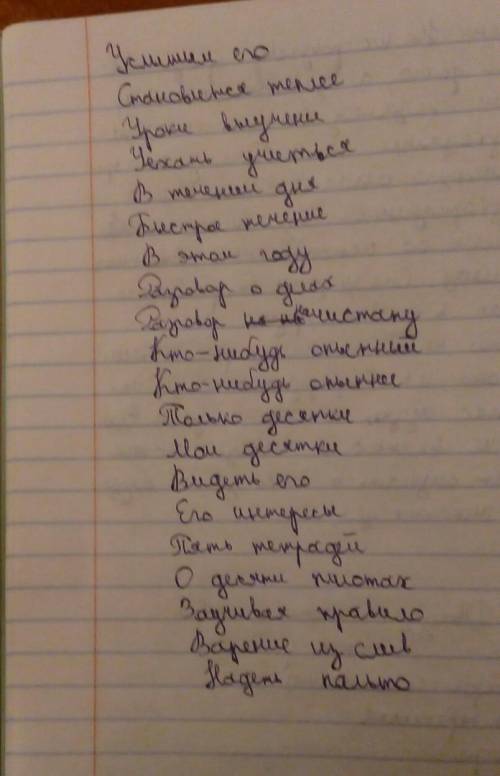 Услышим его
Становится теплее
Уроки выучены
Уехать учиться
В течении дня
Быстрое течение
В этом году
Разговор о делах
Разговор начистану
Кто-нибудь опытный
Кто-нибудь опытнее
Только десятки
Мои десятки
Видеть его
Его интересы
Пять тетрадей
О десяти пилотах
Заучивая правило
Варение из слив
Надеть пальто